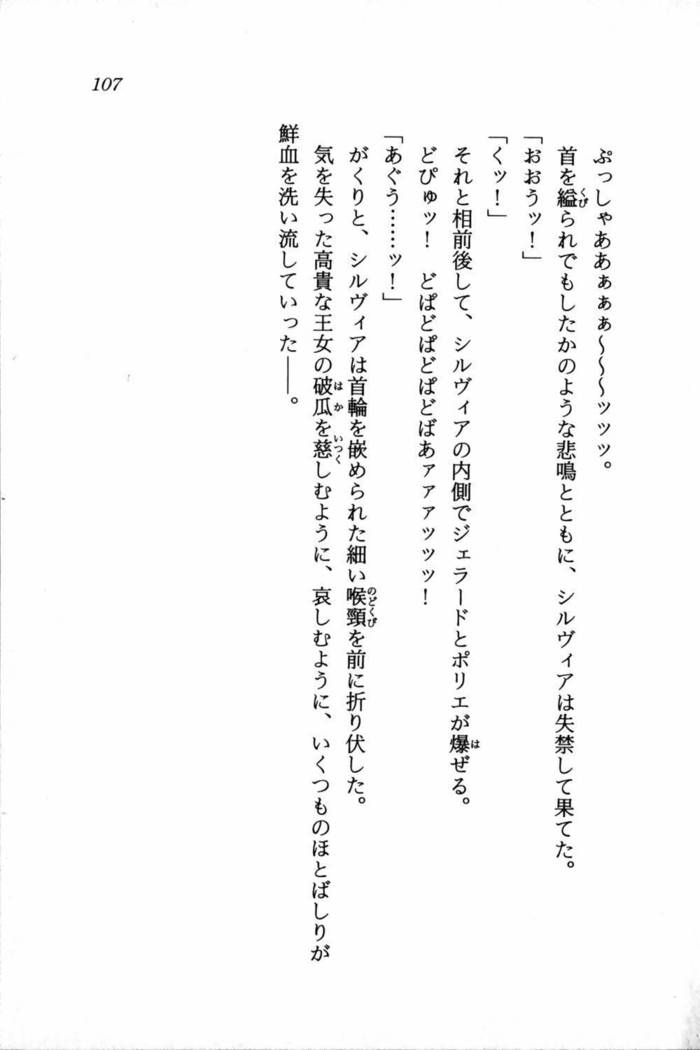 107
ぷっしゃああぁぁぁ～～～ッッッ。
首を縊（くび）られでもしたかのような悲鳴とともに、シルヴィアは失禁して果てた。
「おおうッ！」
「くッ！」
それと相前後して、シルヴィアの内側でジェラードとポリエが爆（は）ぜる。
どぴゅッ！　どぱどぱどぱどばあァァァッッッ！
「あぐう……ッ！」
がくりと、シルヴィアは首輪を嵌められた細い喉頸（のどくび）を前に折り伏した。
気を失った高貴な王女の破瓜（はか）を慈（いつく）しむように、哀しむように、いくつものほとばしりが
鮮血を洗い流していった――。